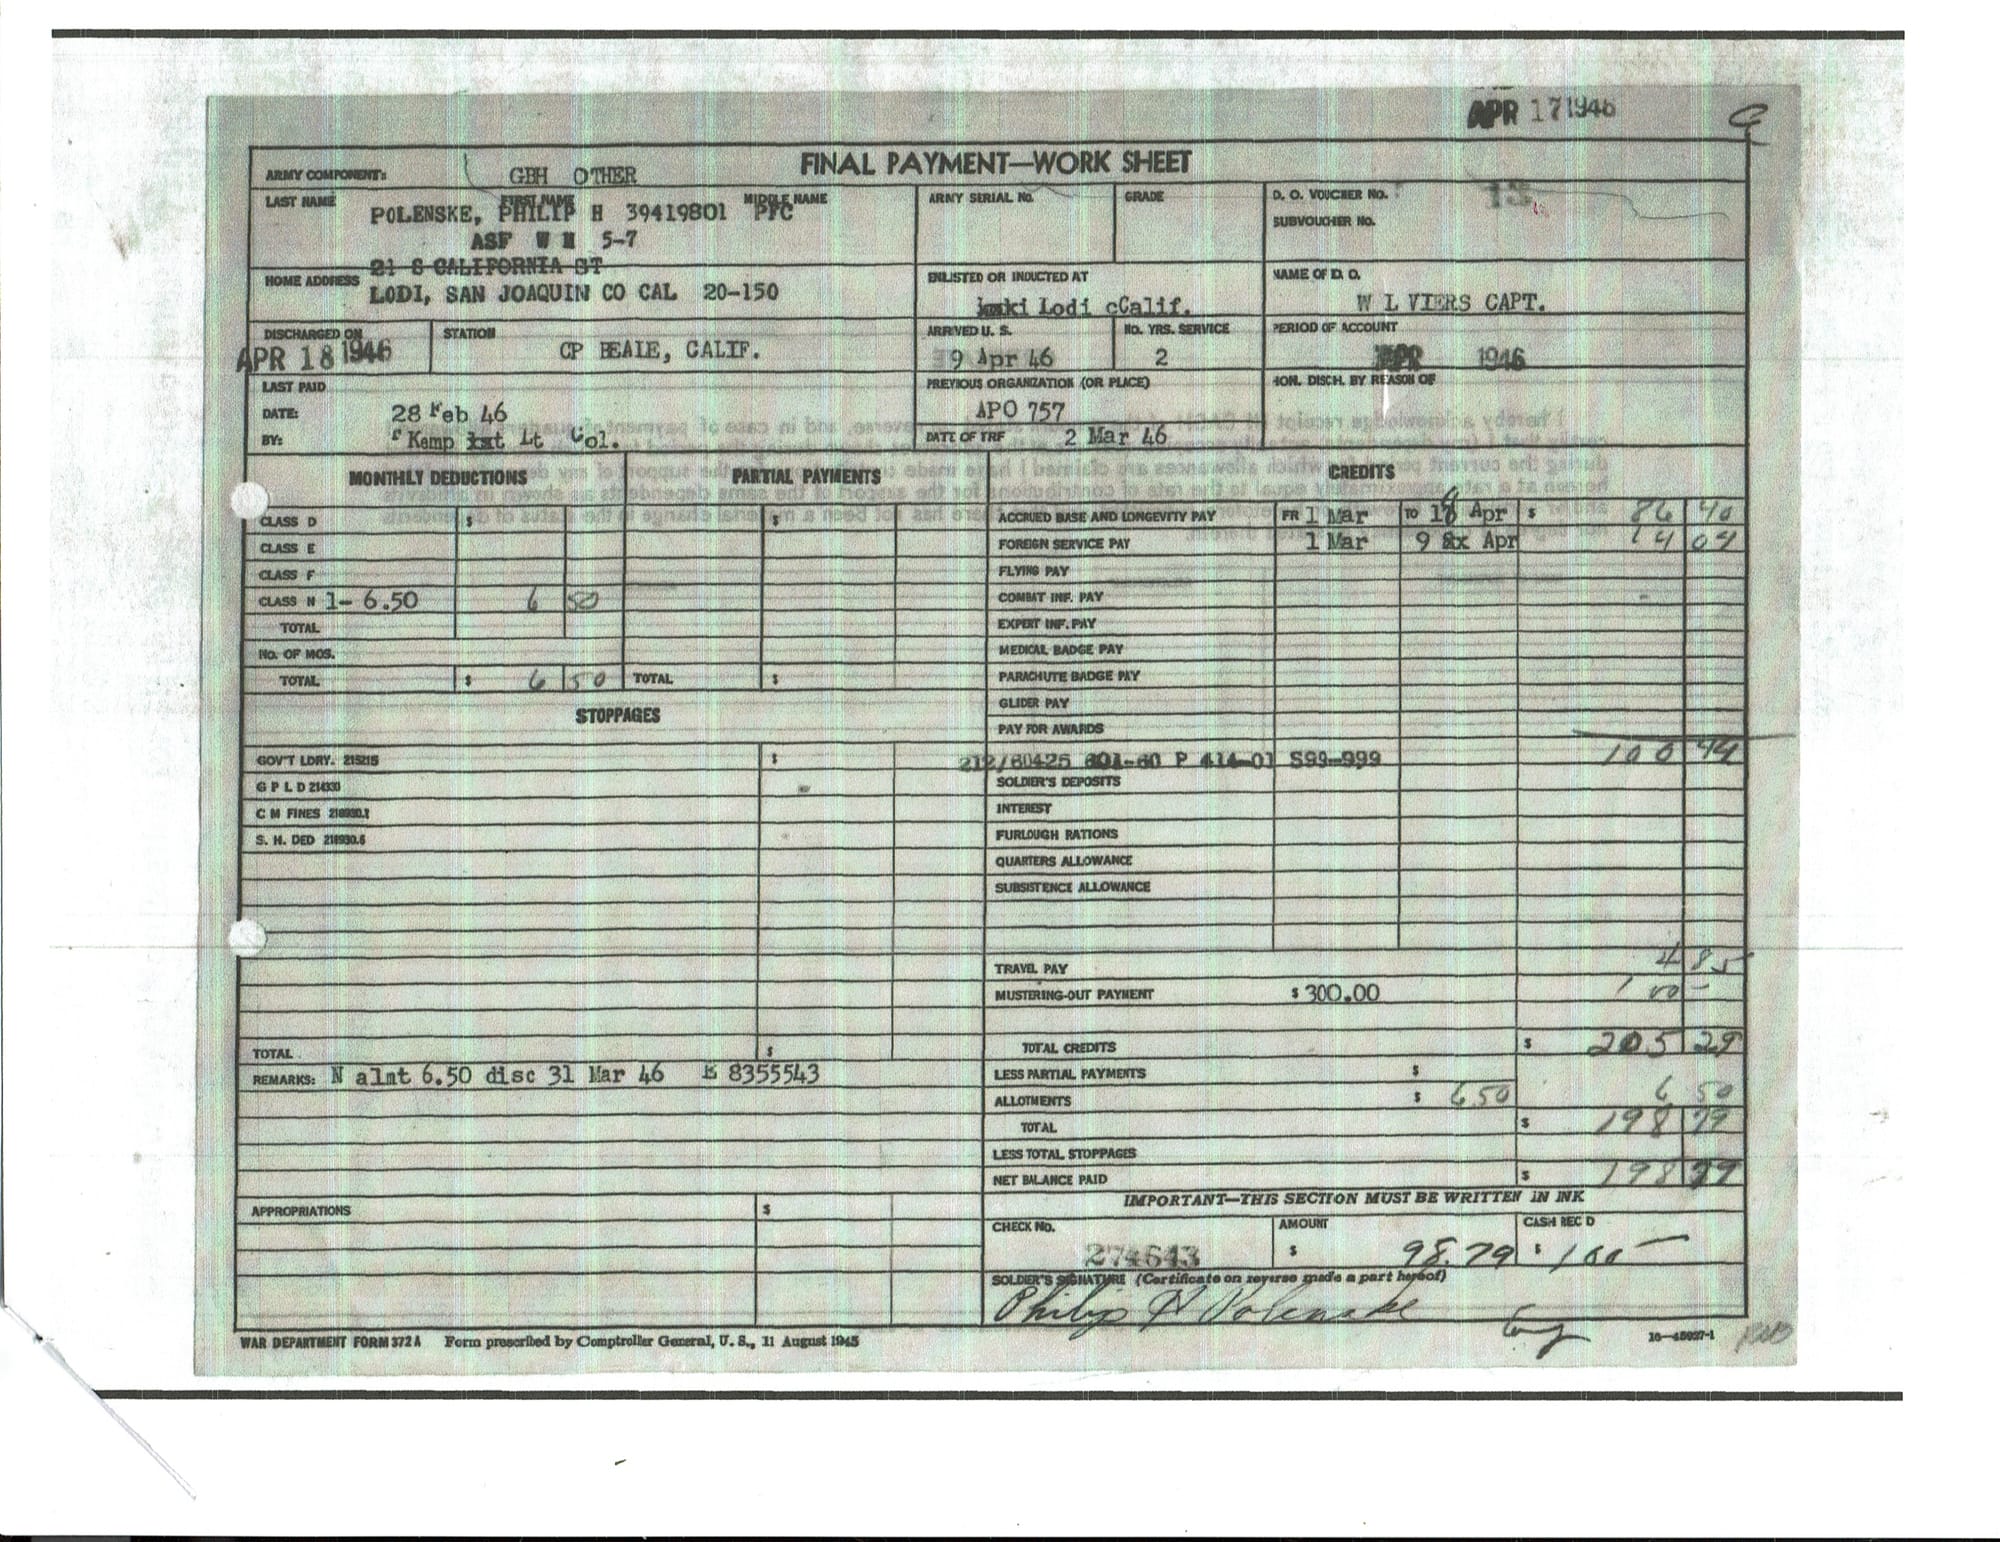 APR 17 1946
FINAL PAYMENT—WORK SHEET
ARMY COMPONENT: GBH OTHER
LAST NAME FIRST NAME MIDDLE NAME
POLENSKE, PHILIP H 39419801 PFC
ASF W M 5-7
ARMY SERIAL No.
GRADE
D. O. VOUCHER No. 15
SUBVOUCHER No.
21 S CALIFORNIA ST
HOME ADDRESS LODI, SAN JOAQUIN CO CAL 20-150
ENLISTED OR INDUCTED AT
Lodi cCalif.
NAME OF D. O.
W L VIERS CAPT.
DISCHARGED ON
APR 18 1946
STATION
CP BEALE, CALIF.
ARRIVED U. S.
9 Apr 46
No. YRS. SERVICE
2
PERIOD OF ACCOUNT
APR 1946
LAST PAID
DATE: 28 Feb 46
BY: F Kemp Lt Col.
PREVIOUS ORGANIZATION (OR PLACE)
APO 757
DATE OF TRF 2 Mar 46
HON. DISCH. BY REASON OF
MONTHLY DEDUCTIONS
PARTIAL PAYMENTS
CREDITS
CLASS D $
$
CLASS E
CLASS F
CLASS N 1- 6.50 6 50
TOTAL
No. OF MOS.
TOTAL $ 6 50
TOTAL $
ACCRUED BASE AND LONGEVITY PAY FR 1 Mar TO 18 Apr $ 86 40
FOREIGN SERVICE PAY 1 Mar 9 Apr 14 04
FLYING PAY
COMBAT INF. PAY
EXPERT INF. PAY
MEDICAL BADGE PAY
PARACHUTE BADGE PAY
GLIDER PAY
PAY FOR AWARDS
212/60425 601-60 P 414-01 S99-999 100 44
STOPPAGES
GOV'T LDRY. 215215 $
G P L D 214330
C M FINES 218930.1
S. H. DED 218930.6
SOLDIER'S DEPOSITS
INTEREST
FURLOUGH RATIONS
QUARTERS ALLOWANCE
SUBSISTENCE ALLOWANCE
TRAVEL PAY 4 85
MUSTERING-OUT PAYMENT $ 300.00 100 -
TOTAL $
TOTAL CREDITS $ 205 29
REMARKS: N almt 6.50 disc 31 Mar 46 E 8355543
LESS PARTIAL PAYMENTS $
ALLOTMENTS $ 6 50 6 50
TOTAL $ 198 79
LESS TOTAL STOPPAGES
NET BALANCE PAID $ 198 79
APPROPRIATIONS $
IMPORTANT—THIS SECTION MUST BE WRITTEN IN INK
CHECK No.
274643
AMOUNT
$ 98.79
CASH REC'D
$ 100 —
SOLDIER'S SIGNATURE (Certificate on reverse made a part hereof)
Philip H Polenske
WAR DEPARTMENT FORM 372A Form prescribed by Comptroller General, U. S., 11 August 1945
16—45027-1